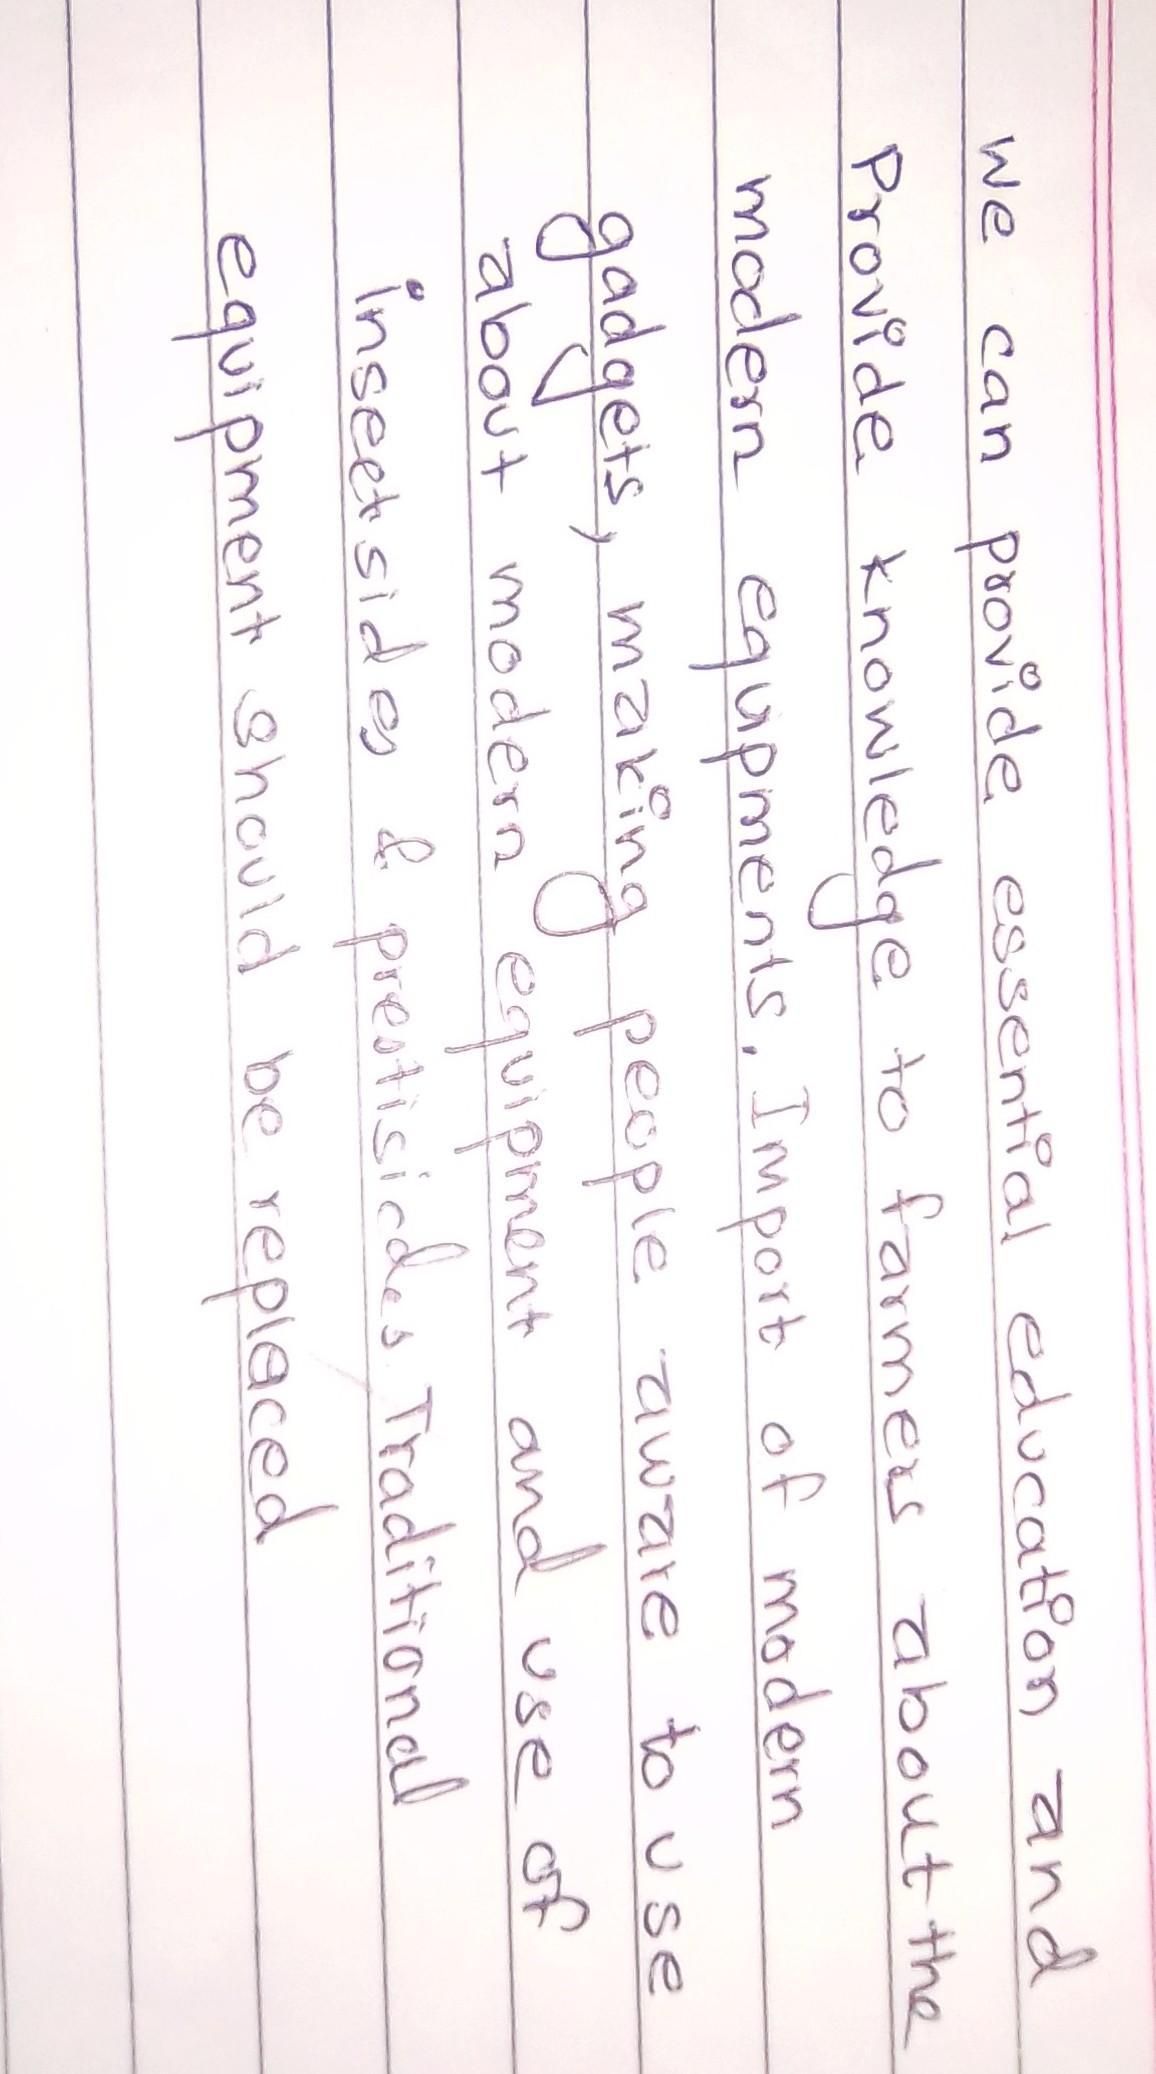 we can provide essential education and
Provide knowledge to farmers about the
modern equpments. Import of modern
gadgets, making people aware to use
about modern equipment and use of
insectsides & prestisicdes. Traditional
equipment should be replaced